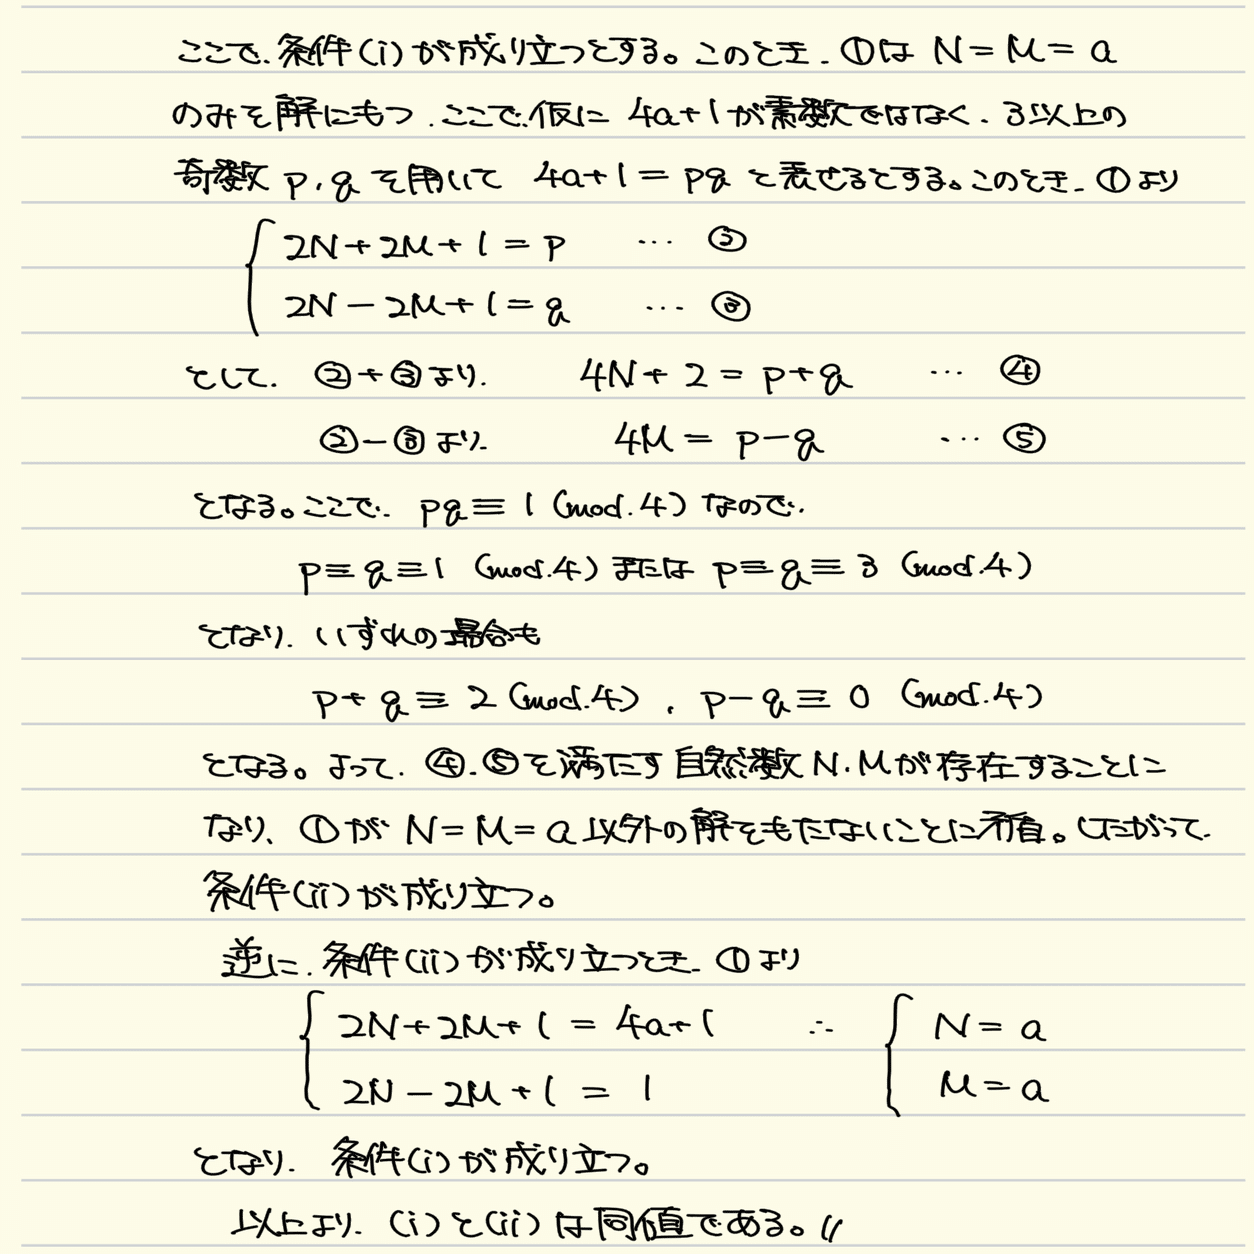 ここで、条件(i)が成り立つとする。このとき、①は N = M = a
のみを解にもつ。ここで、仮に 4a+1が素数ではなく、3以上の
奇数 p, q を用いて 4a+1 = pq と表せるとする。このとき、①より
2N+2M+1 = p … ②
2N-2M+1 = q … ③
として、②+③より、 4N+2 = p+q … ④
②-③より、 4M = p-q … ⑤
となる。ここで、pq≡1 (mod.4) なので、
p≡q≡1 (mod.4) または p≡q≡3 (mod.4)
となり、いずれの場合も
p+q≡2 (mod.4), p-q≡0 (mod.4)
となる。よって、④、⑤を満たす自然数N, Mが存在することに
なり、①が N=M=a 以外の解をもたないことに矛盾。したがって、
条件(ii)が成り立つ。
逆に、条件(ii)が成り立つとき、①より
2N+2M+1 = 4a+1 ∴ N = a
2N-2M+1 = 1 M = a
となり、条件(i)が成り立つ。
以上より、(i)と(ii)は同値である。//